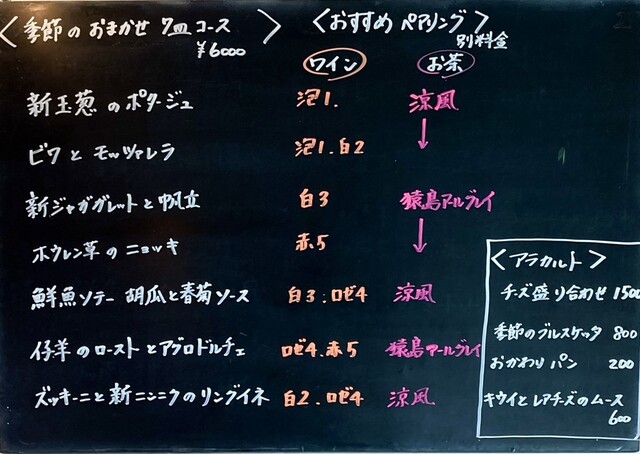 〈季節の おまかせ 7皿 コース〉
¥6000
〈おすすめ ペアリング〉
別料金
ワイン お茶
新玉葱 の ポタージュ 泡1. 涼風
ビワ と モッツァレラ 泡1.白2 ↓
新ジャガガレットと帆立 白3 猿島アールグレイ
ホウレン草 の ニョッキ 赤.5 ↓
鮮魚ソテー 胡瓜と春菊ソース 白3.ロゼ4 涼風
仔羊 の ロースト と アグロドルチェ ロゼ4.赤5 猿島アールグレイ
ズッキーニと新ニンニクのリングイネ 白2.ロゼ4 涼風
〈アラカルト〉
チーズ盛り合わせ 1500
季節のブルスケッタ 800
おかわり パン 200
キウイと レアチーズのムース
600